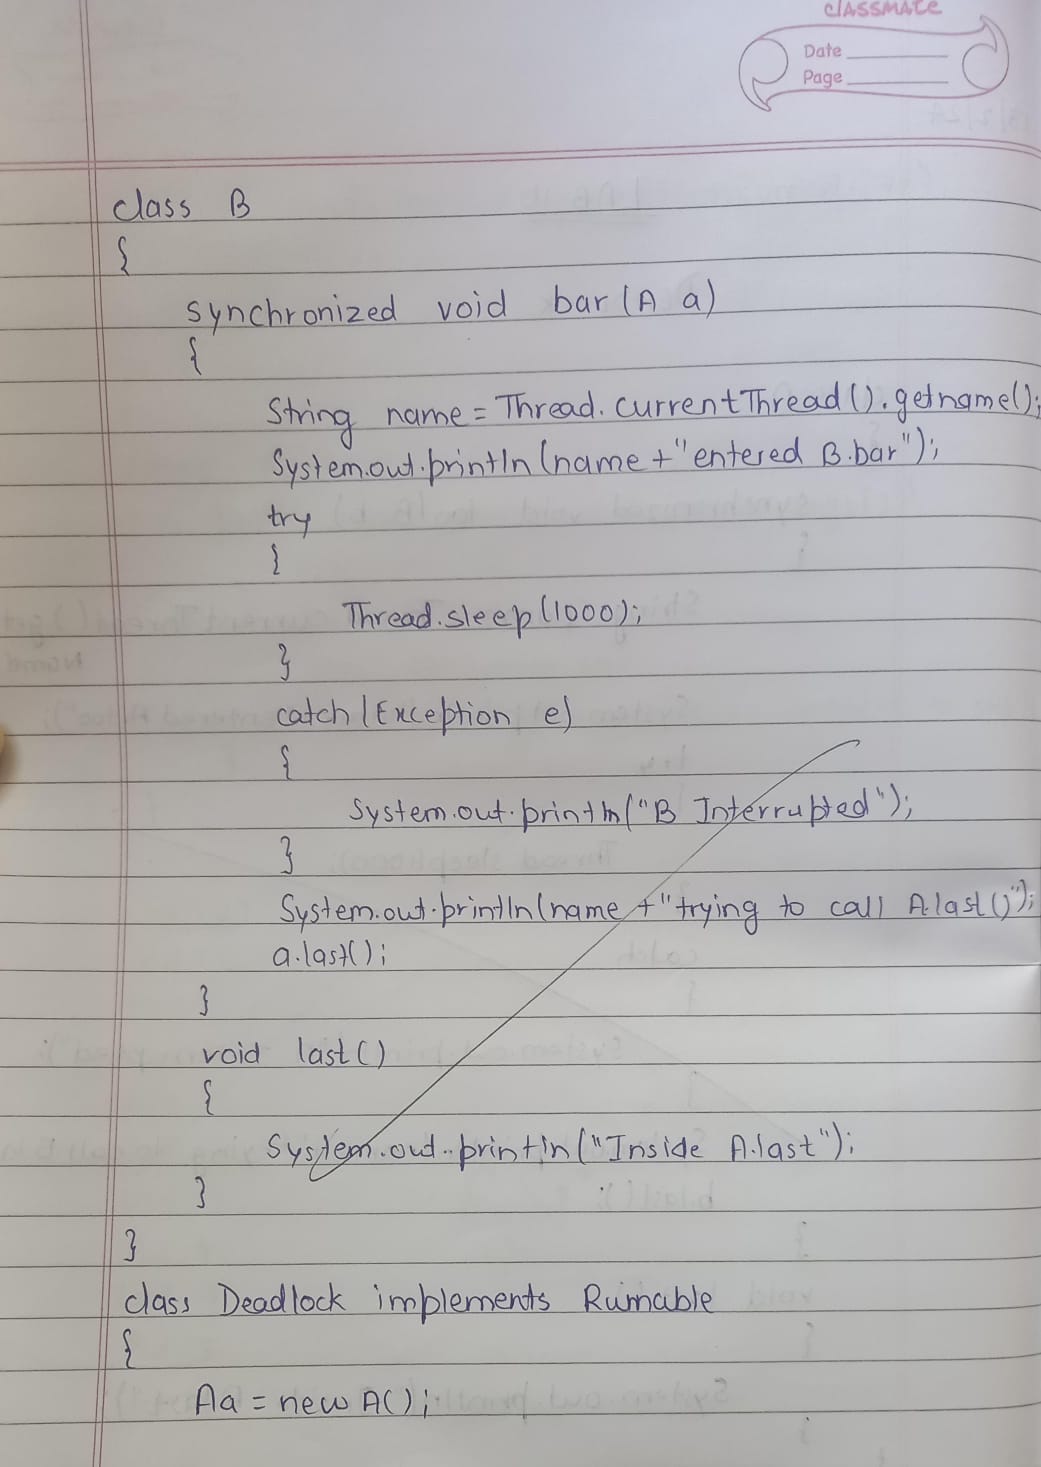 classmate
Date
Page
class B
{
synchronized void bar(A a)
{
String name = Thread.currentThread().getname();
System.out.println(name+"entered B.bar");
try
{
Thread.sleep(1000);
}
catch(Exception e)
{
System.out.println("B Interrupted");
}
System.out.println(name+"trying to call A.last()");
a.last();
}
void last()
{
System.out.println("Inside A.last");
}
}
class Deadlock implements Runnable
{
A a = new A();